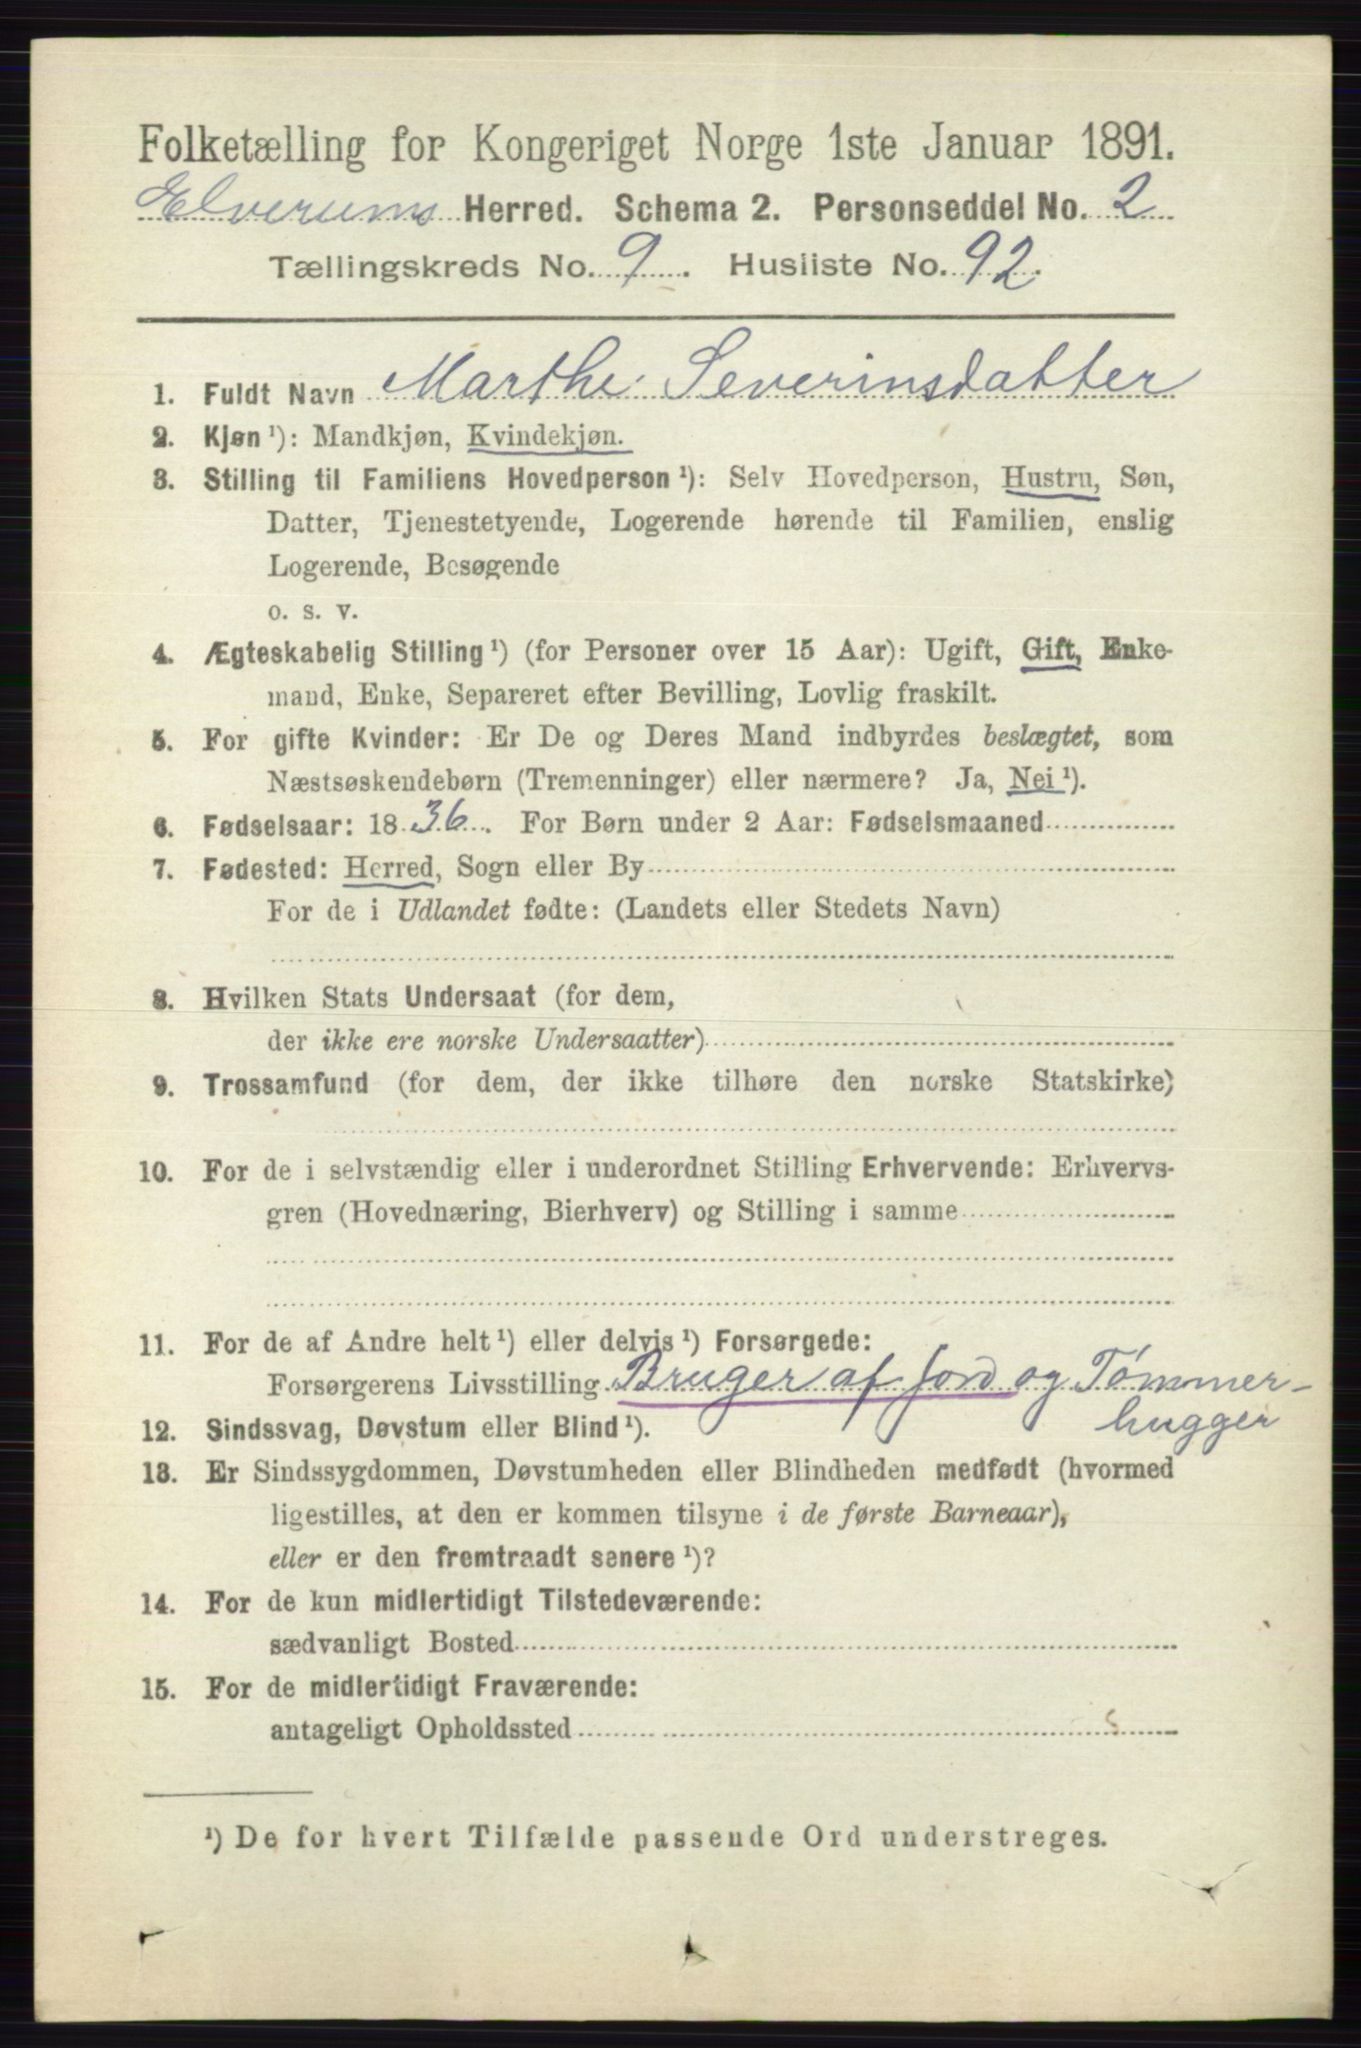 Folketælling for Kongeriget Norge 1ste Januar 1891.
Elverums Herred. Schema 2. Personseddel No. 2
Tællingskreds No. 9. Husliste No. 92.
1. Fuldt Navn Marthe Severinsdatter
2. Kjøn ¹): Mandkjøn, Kvindekjøn.
3. Stilling til Familiens Hovedperson ¹): Selv Hovedperson, Hustru, Søn,
Datter, Tjenestetyende, Logerende hørende til Familien, enslig
Logerende, Besøgende
o. s. v.
4. Ægteskabelig Stilling ¹) (for Personer over 15 Aar): Ugift, Gift, Enke-
mand, Enke, Separeret efter Bevilling, Lovlig fraskilt.
5. For gifte Kvinder: Er De og Deres Mand indbyrdes beslægtet, som
Næstsøskendebørn (Tremenninger) eller nærmere? Ja, Nei ¹).
6. Fødselsaar: 1836. For Børn under 2 Aar: Fødselsmaaned
7. Fødested: Herred, Sogn eller By
For de i Udlandet fødte: (Landets eller Stedets Navn)
8. Hvilken Stats Undersaat (for dem,
der ikke ere norske Undersaatter)
9. Trossamfund (for dem, der ikke tilhøre den norske Statskirke)
10. For de i selvstændig eller i underordnet Stilling Erhvervende: Erhvervs-
gren (Hovednæring, Bierhverv) og Stilling i samme
11. For de af Andre helt ¹) eller delvis ¹) Forsørgede:
Forsørgerens Livsstilling Bruger af jord og Tømmer-
hugger
12. Sindssvag, Døvstum eller Blind ¹).
13. Er Sindssygdommen, Døvstumheden eller Blindheden medfødt (hvormed
ligestilles, at den er kommen tilsyne i de første Barneaar),
eller er den fremtraadt senere ¹)?
14. For de kun midlertidigt Tilstedeværende:
sædvanligt Bosted
15. For de midlertidigt Fraværende:
antageligt Opholdssted
¹) De for hvert Tilfælde passende Ord understreges.